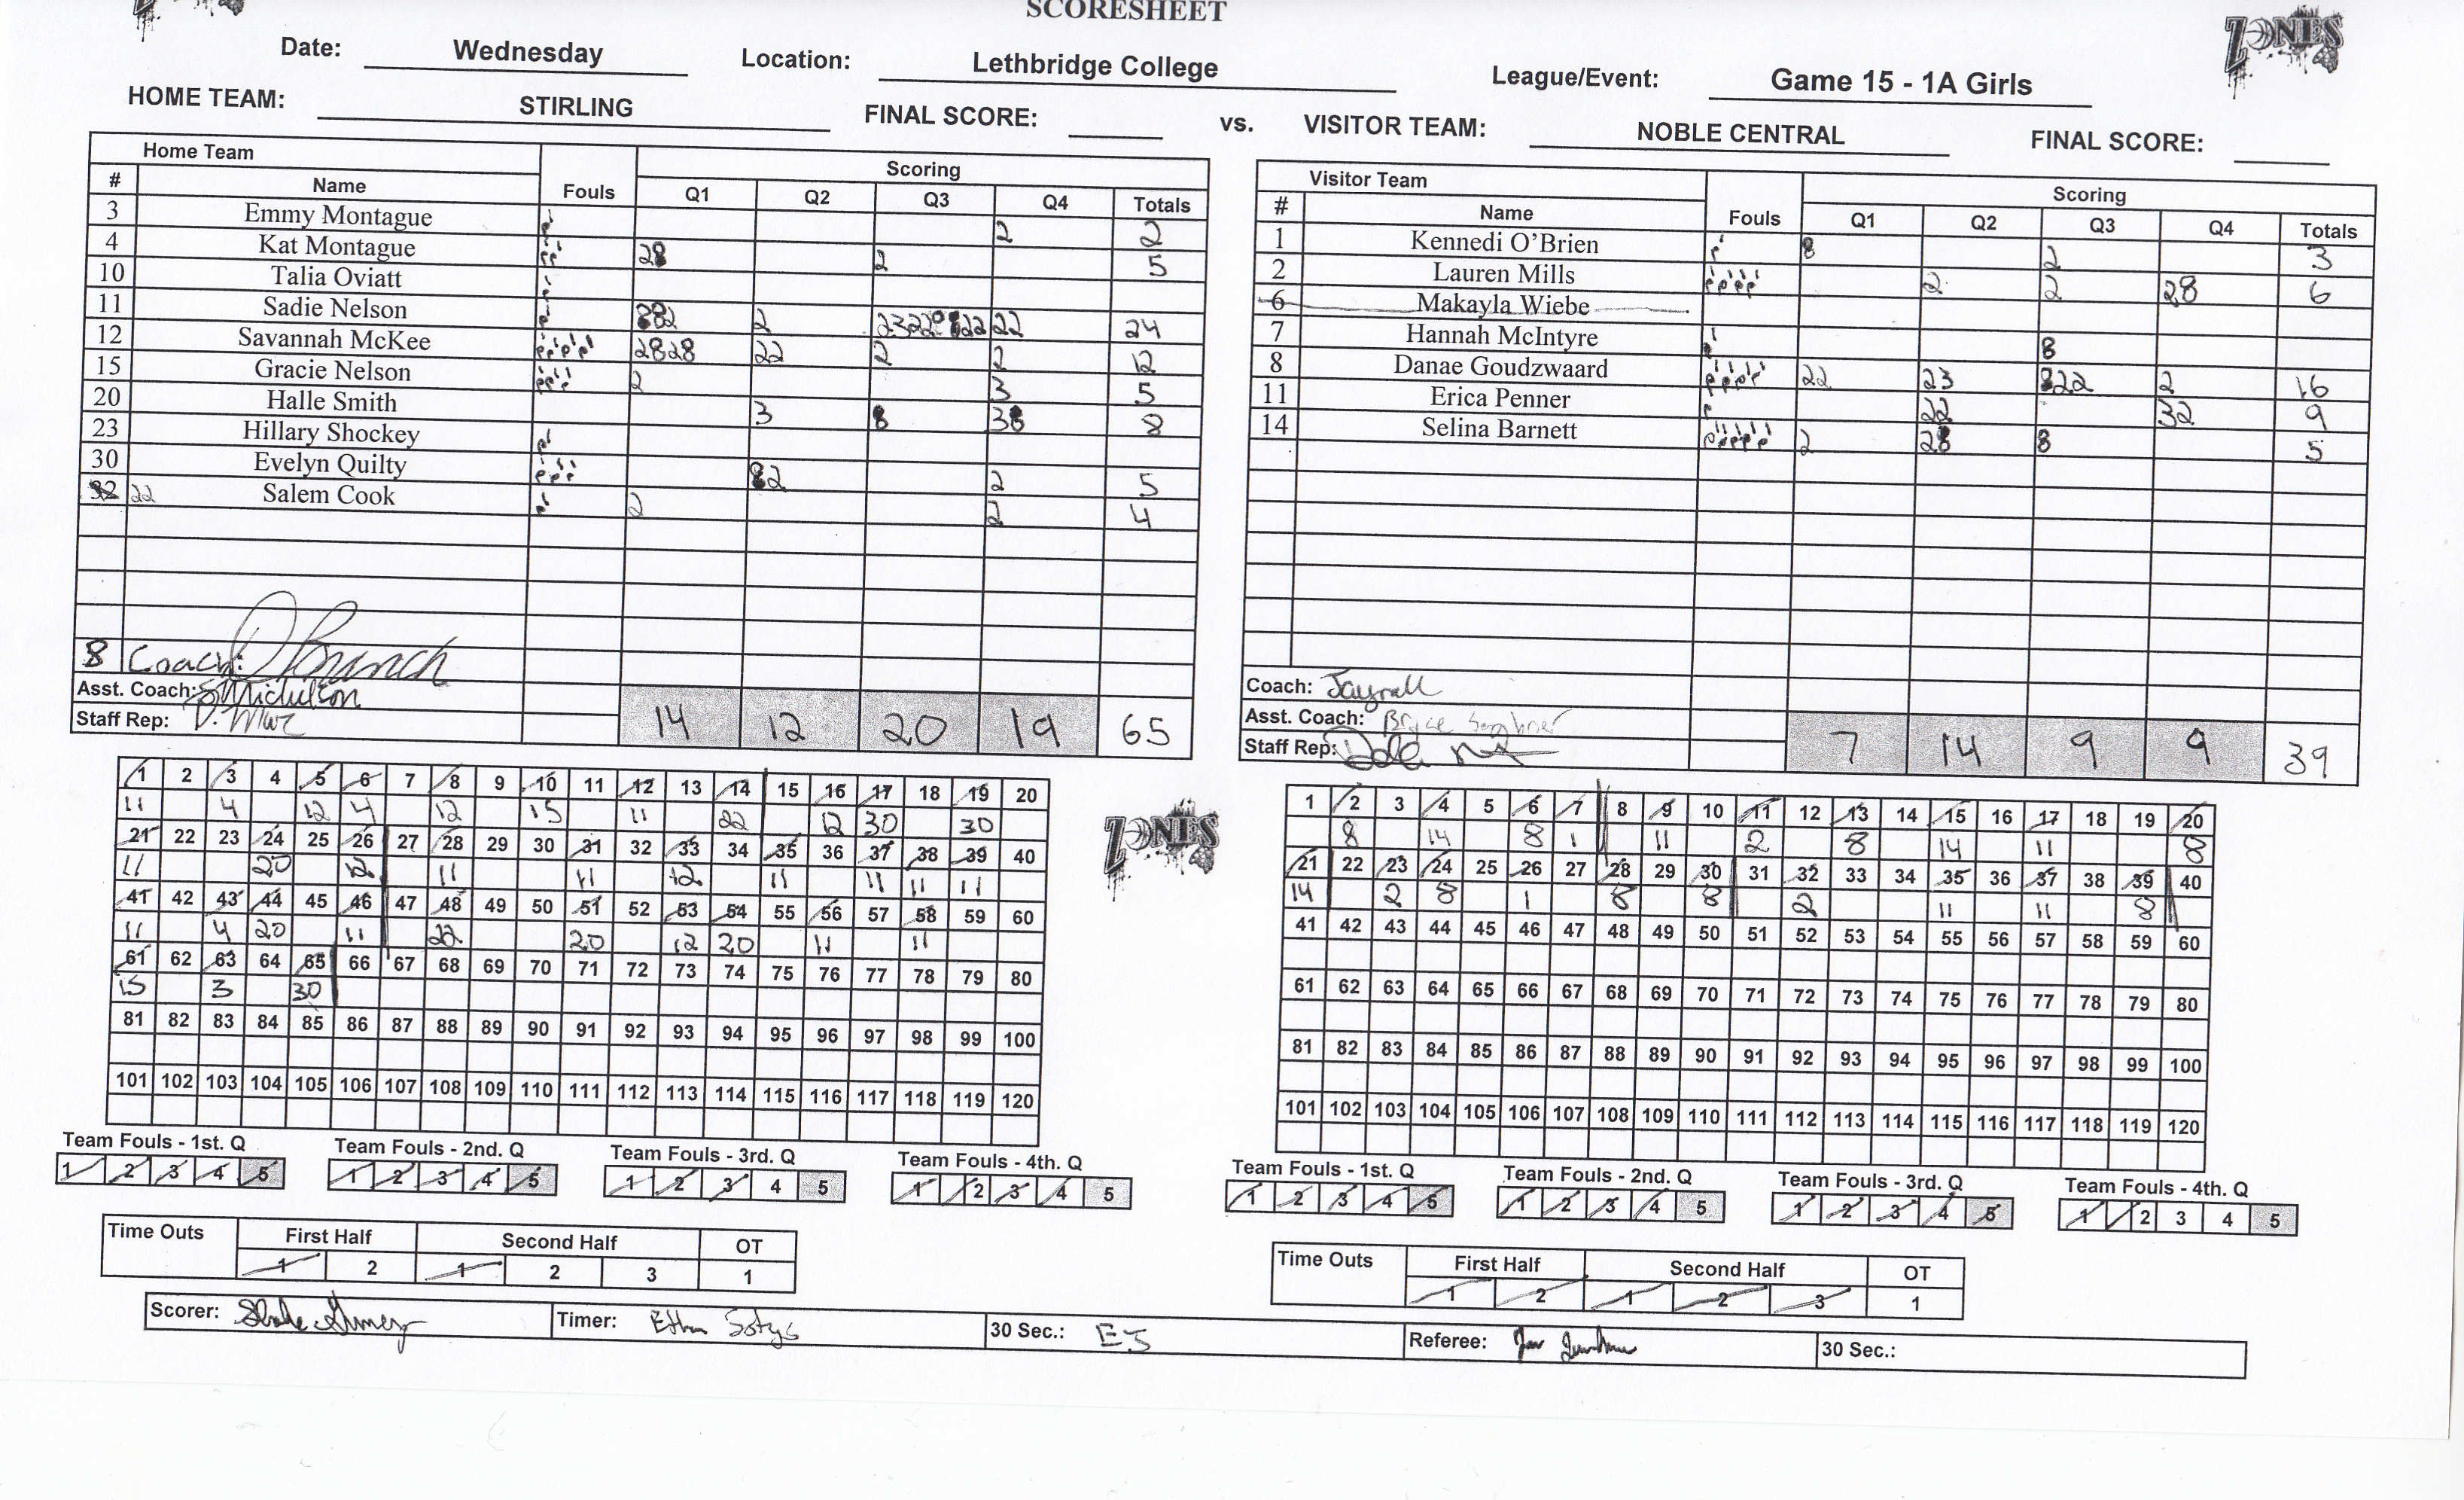 SCORESHEET
ZONES
Date: Wednesday Location: Lethbridge College League/Event: Game 15 - 1A Girls
HOME TEAM: STIRLING FINAL SCORE: vs. VISITOR TEAM: NOBLE CENTRAL FINAL SCORE:
Home Team Scoring
# Name Fouls Q1 Q2 Q3 Q4 Totals
3 Emmy Montague 2 2
4 Kat Montague 2 2 5
10 Talia Oviatt
11 Sadie Nelson 2 2 22 24
12 Savannah McKee 22 2 2 12
15 Gracie Nelson 2 3 5
20 Halle Smith 3 3 8
23 Hillary Shockey
30 Evelyn Quilty 2 2 5
32 22 Salem Cook 2 2 4
8 Coach:
Asst. Coach:
Staff Rep:
14 12 20 19 65
Visitor Team Scoring
# Name Fouls Q1 Q2 Q3 Q4 Totals
1 Kennedi O'Brien 2 3
2 Lauren Mills 2 2 2 6
6 Makayla Wiebe
7 Hannah McIntyre
8 Danae Goudzwaard 22 23 22 2 16
11 Erica Penner 22 32 9
14 Selina Barnett 2 2 5
Coach:
Asst. Coach: Bryce
Staff Rep:
7 14 9 9 39
1 2 3 4 5 6 7 8 9 10 11 12 13 14 15 16 17 18 19 20
11 4 12 4 12 15 11 22 12 30 30
21 22 23 24 25 26 27 28 29 30 31 32 33 34 35 36 37 38 39 40
11 20 12 11 11 12 11 11 11 11
41 42 43 44 45 46 47 48 49 50 51 52 53 54 55 56 57 58 59 60
11 4 20 11 22 20 12 20 11 11
61 62 63 64 65 66 67 68 69 70 71 72 73 74 75 76 77 78 79 80
15 3 30
81 82 83 84 85 86 87 88 89 90 91 92 93 94 95 96 97 98 99 100
101 102 103 104 105 106 107 108 109 110 111 112 113 114 115 116 117 118 119 120
ZONES
1 2 3 4 5 6 7 8 9 10 11 12 13 14 15 16 17 18 19 20
8 14 8 1 11 2 8 14 11 8
21 22 23 24 25 26 27 28 29 30 31 32 33 34 35 36 37 38 39 40
14 2 8 1 8 8 2 11 11 8
41 42 43 44 45 46 47 48 49 50 51 52 53 54 55 56 57 58 59 60
61 62 63 64 65 66 67 68 69 70 71 72 73 74 75 76 77 78 79 80
81 82 83 84 85 86 87 88 89 90 91 92 93 94 95 96 97 98 99 100
101 102 103 104 105 106 107 108 109 110 111 112 113 114 115 116 117 118 119 120
Team Fouls - 1st. Q Team Fouls - 2nd. Q Team Fouls - 3rd. Q Team Fouls - 4th. Q
1 2 3 4 5 1 2 3 4 5 1 2 3 4 5 1 2 3 4 5
Team Fouls - 1st. Q Team Fouls - 2nd. Q Team Fouls - 3rd. Q Team Fouls - 4th. Q
1 2 3 4 5 1 2 3 4 5 1 2 3 4 5 1 2 3 4 5
Time Outs First Half Second Half OT
1 2 1 2 3 1
Time Outs First Half Second Half OT
1 2 1 2 3 1
Scorer: Timer: Ethan 30 Sec.: EJ Referee: 30 Sec.: